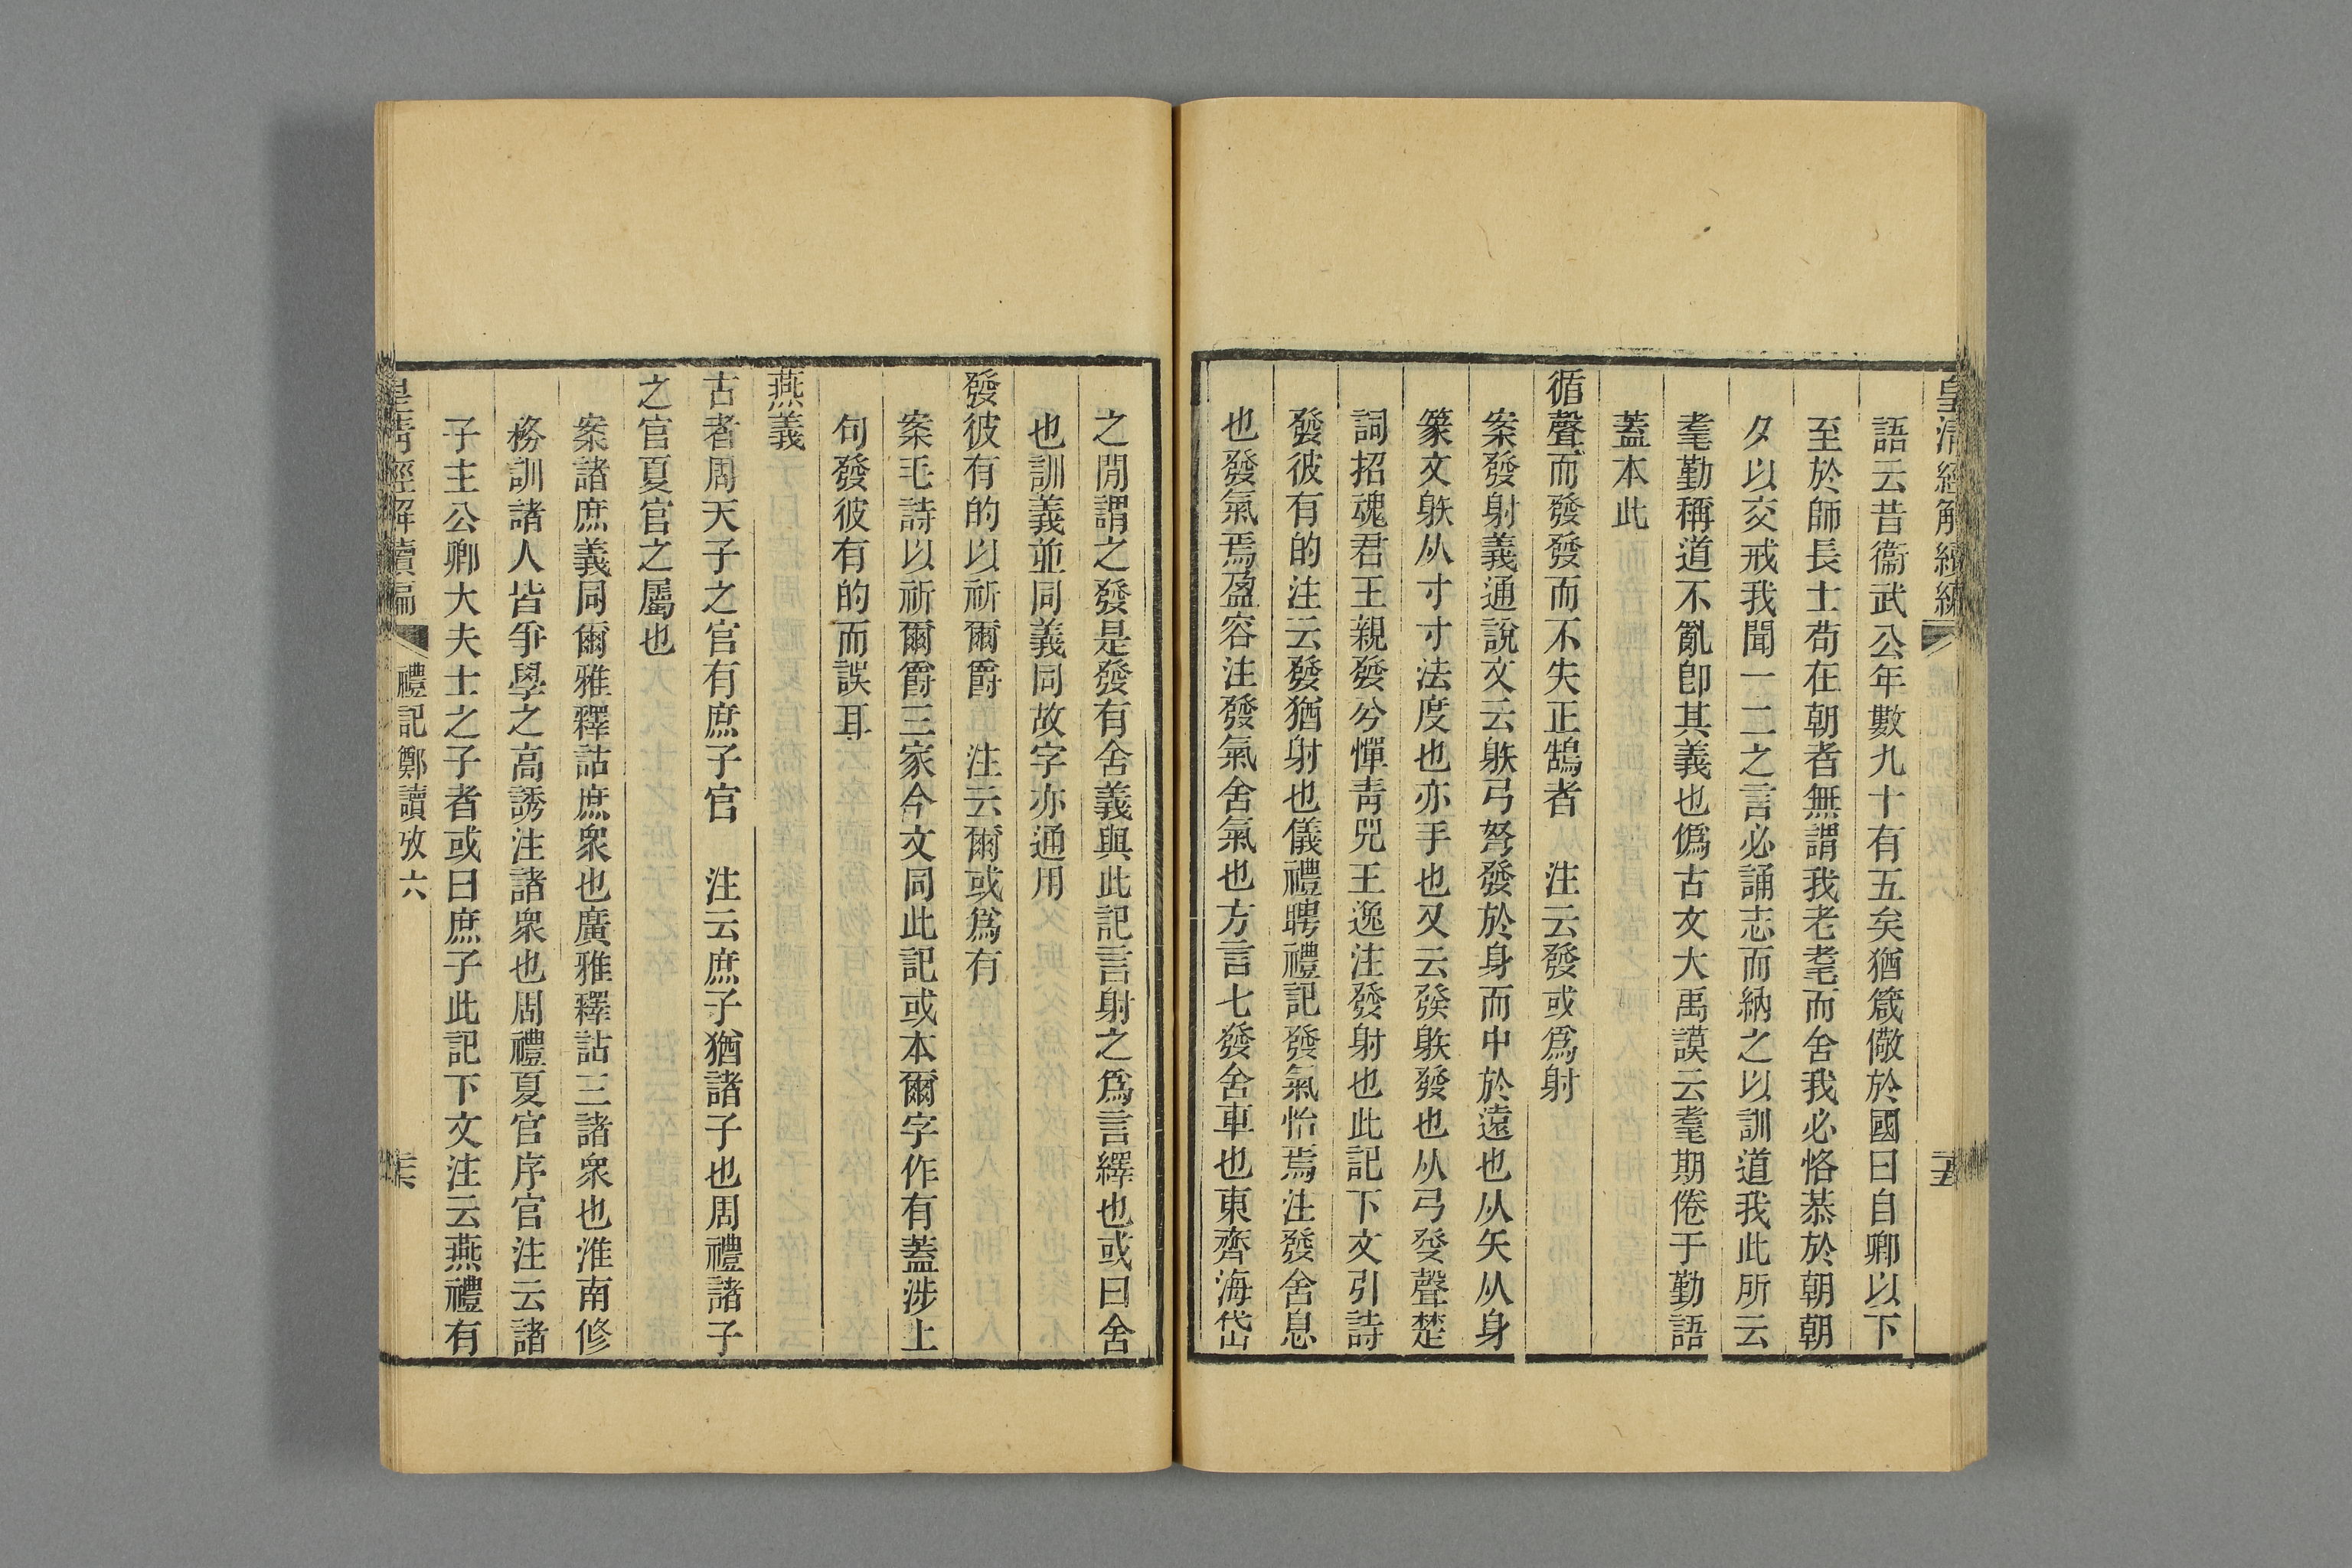 皇清經解續編
語云昔衞武公年數九十有五矣猶箴儆於國曰自卿以下
至於師長士苟在朝者無謂我老耄而舍我必恪恭於朝朝
夕以交戒我聞一二之言必誦志而納之以訓道我此所云
耄勤稱道不亂卽其義也僞古文大禹謨云耄期倦于勤語
蓋本此
循聲而發發而不失正鵠者　注云發或爲射
案發射義通說文云䠶弓弩發於身而中於遠也从矢从身
篆文䠶从寸寸法度也亦手也又云發䠶發也从弓癹聲楚
詞招魂君王親發兮憚靑兕王逸注發射也此記下文引詩
發彼有的注云發猶射也儀禮聘禮記發氣怡焉注發舍息
也發氣焉盈容注發氣舍氣也方言七發舍車也東齊海岱
之閒謂之發是發有舍義與此記言射之爲言繹也或曰舍
也訓義並同義同故字亦通用
發彼有的以祈爾爵　注云爾或爲有
案毛詩以祈爾爵三家今文同此記或本爾字作有蓋涉上
句發彼有的而誤耳
燕義
古者周天子之官有庶子官　注云庶子猶諸子也周禮諸子
之官夏官之屬也
案諸庶義同爾雅釋詁庶衆也廣雅釋詁三諸衆也淮南修
務訓諸人皆爭學之高誘注諸衆也周禮夏官序官注云諸
子主公卿大夫士之子者或曰庶子此記下文注云燕禮有
皇淸經解續編　禮記鄭讀攷六